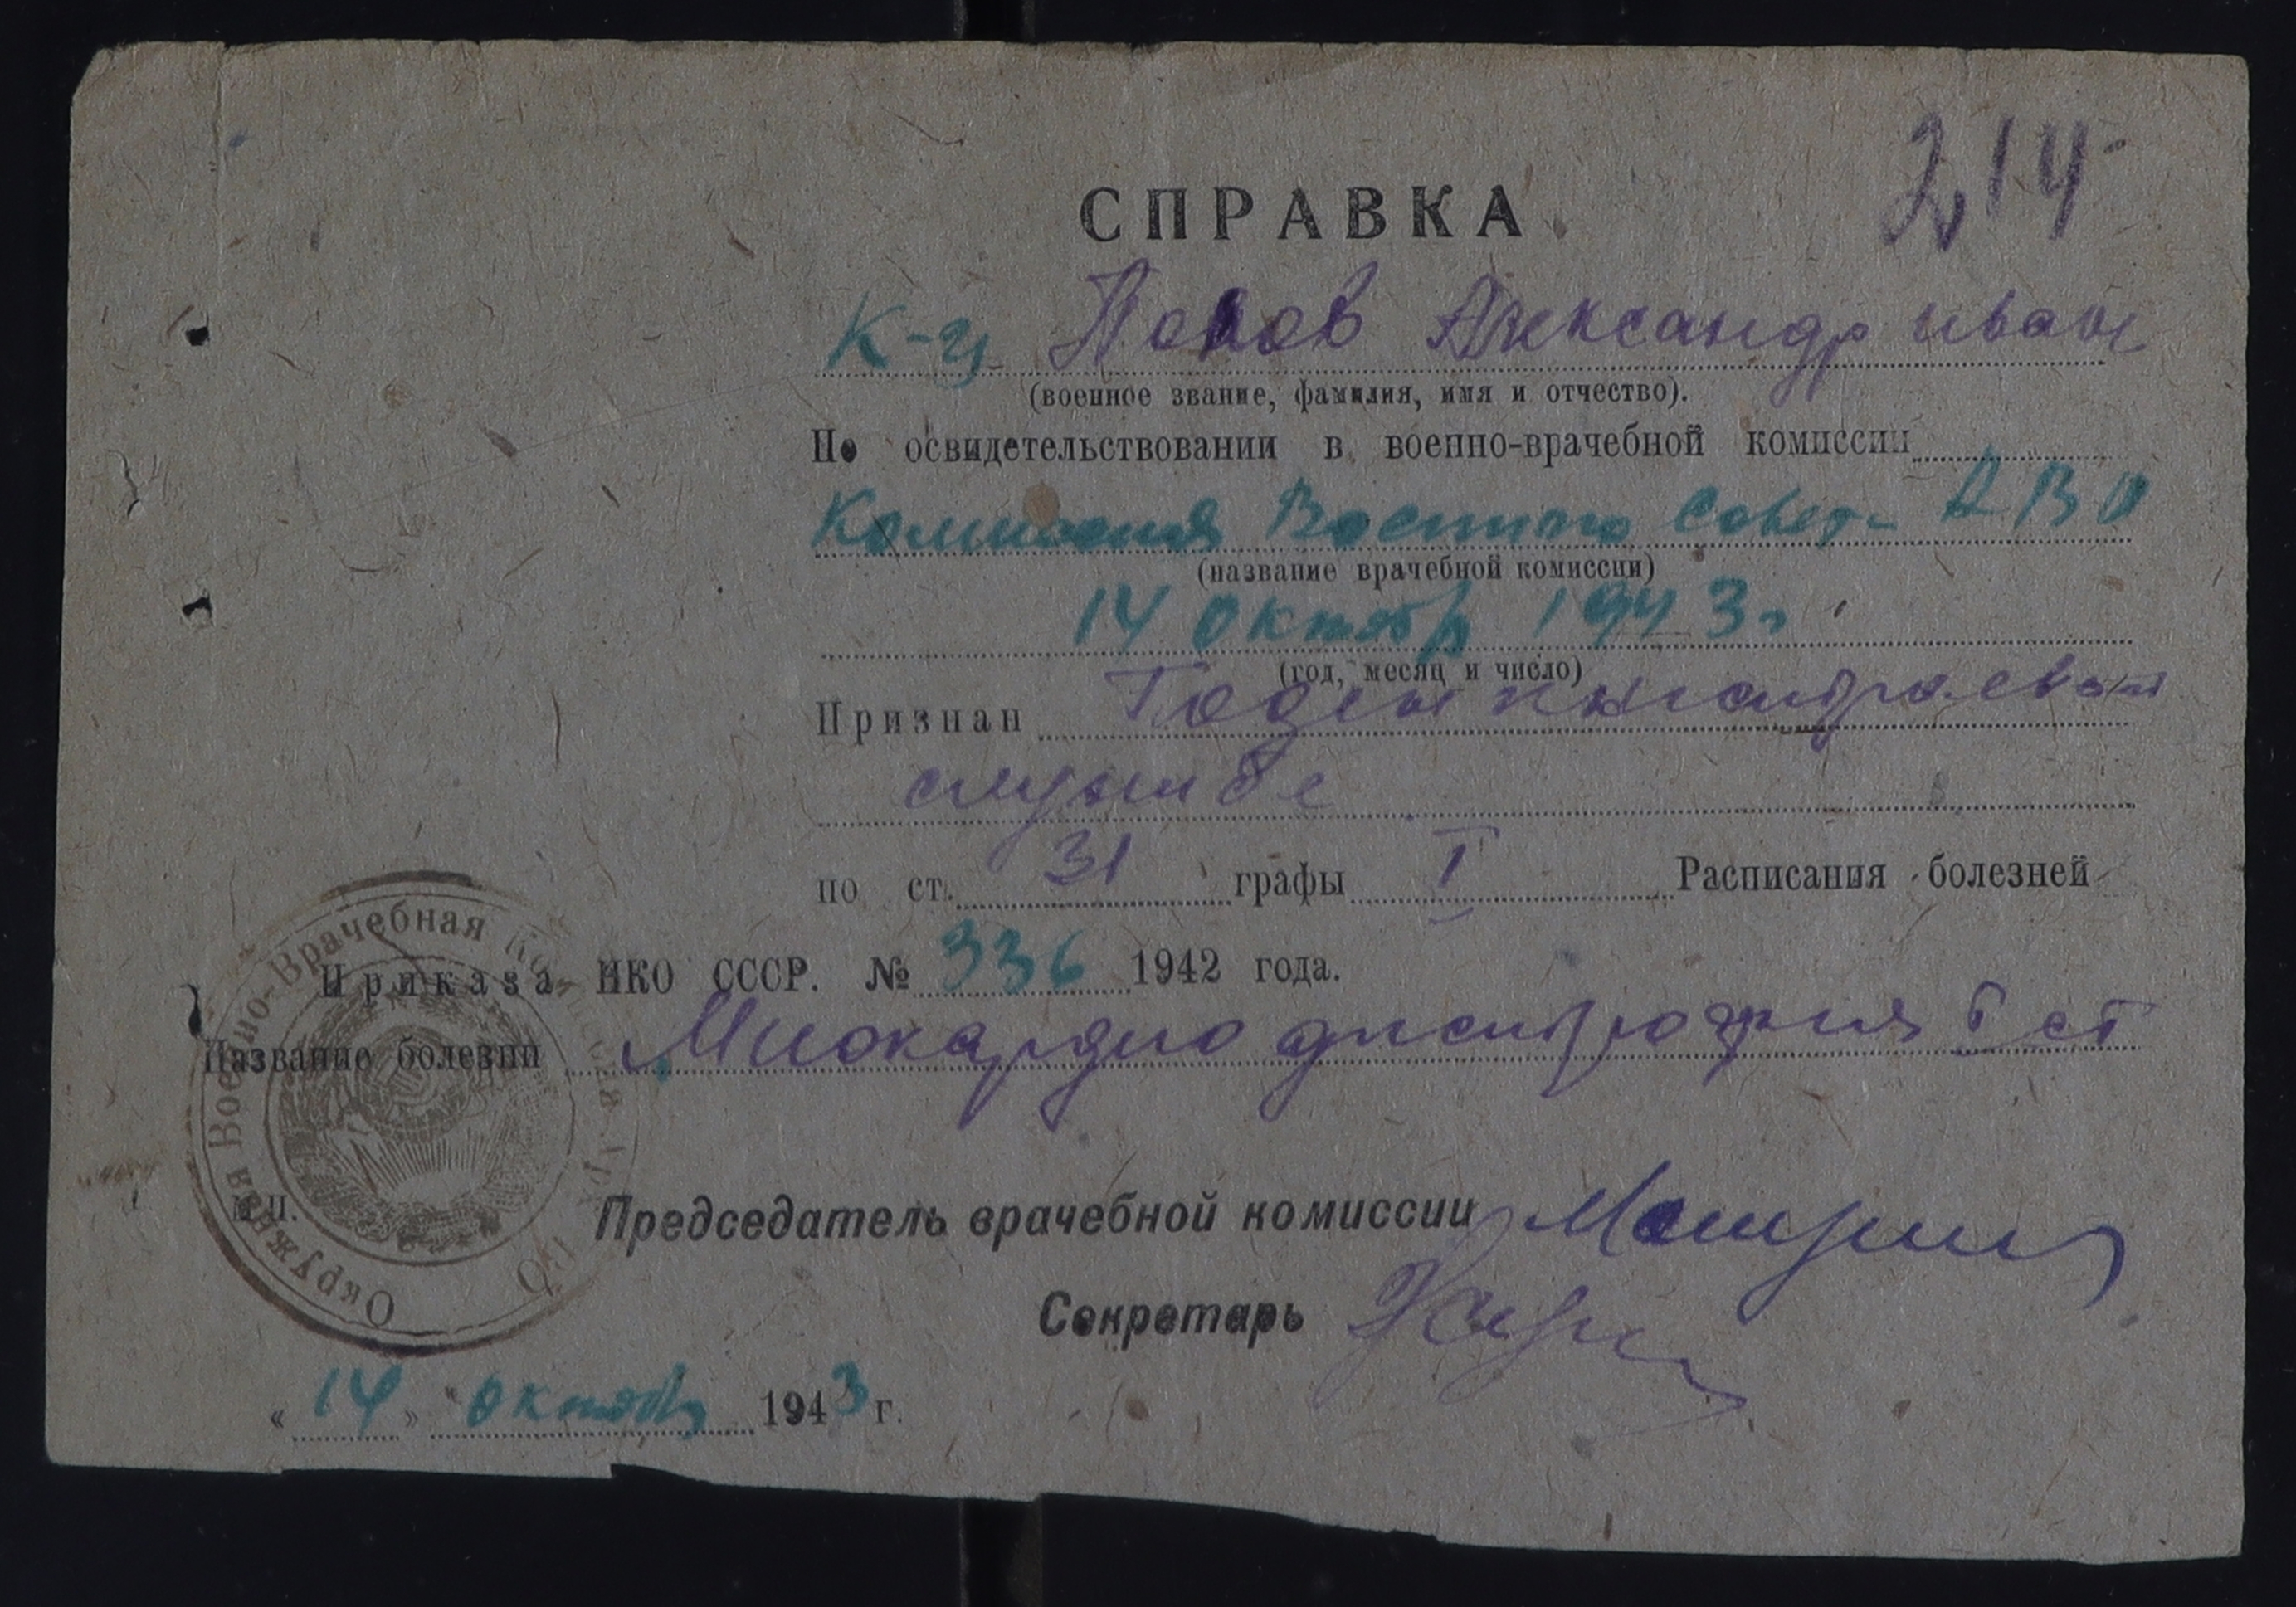 214
СПРАВКА.
К-ц Попов Александр Иван
(военное звание, фамилия, имя и отчество).
По освидетельствовании в военно-врачебной комиссии
Комиссия Военного Совета АВО
(название врачебной комиссии)
14 октябр 1943 г
(год, месяц и число)
Признан Годен к нестроевой
службе
по ст. 31 графы I Расписания болезней
Приказа НКО СССР. № 336 1942 года.
Название болезни Миокардио дистрофия I ст
М. П.
Окружная Военно-Врачебная Комиссия
Председатель врачебной комиссии
Секретарь
« 14 » октябр 1943 г.